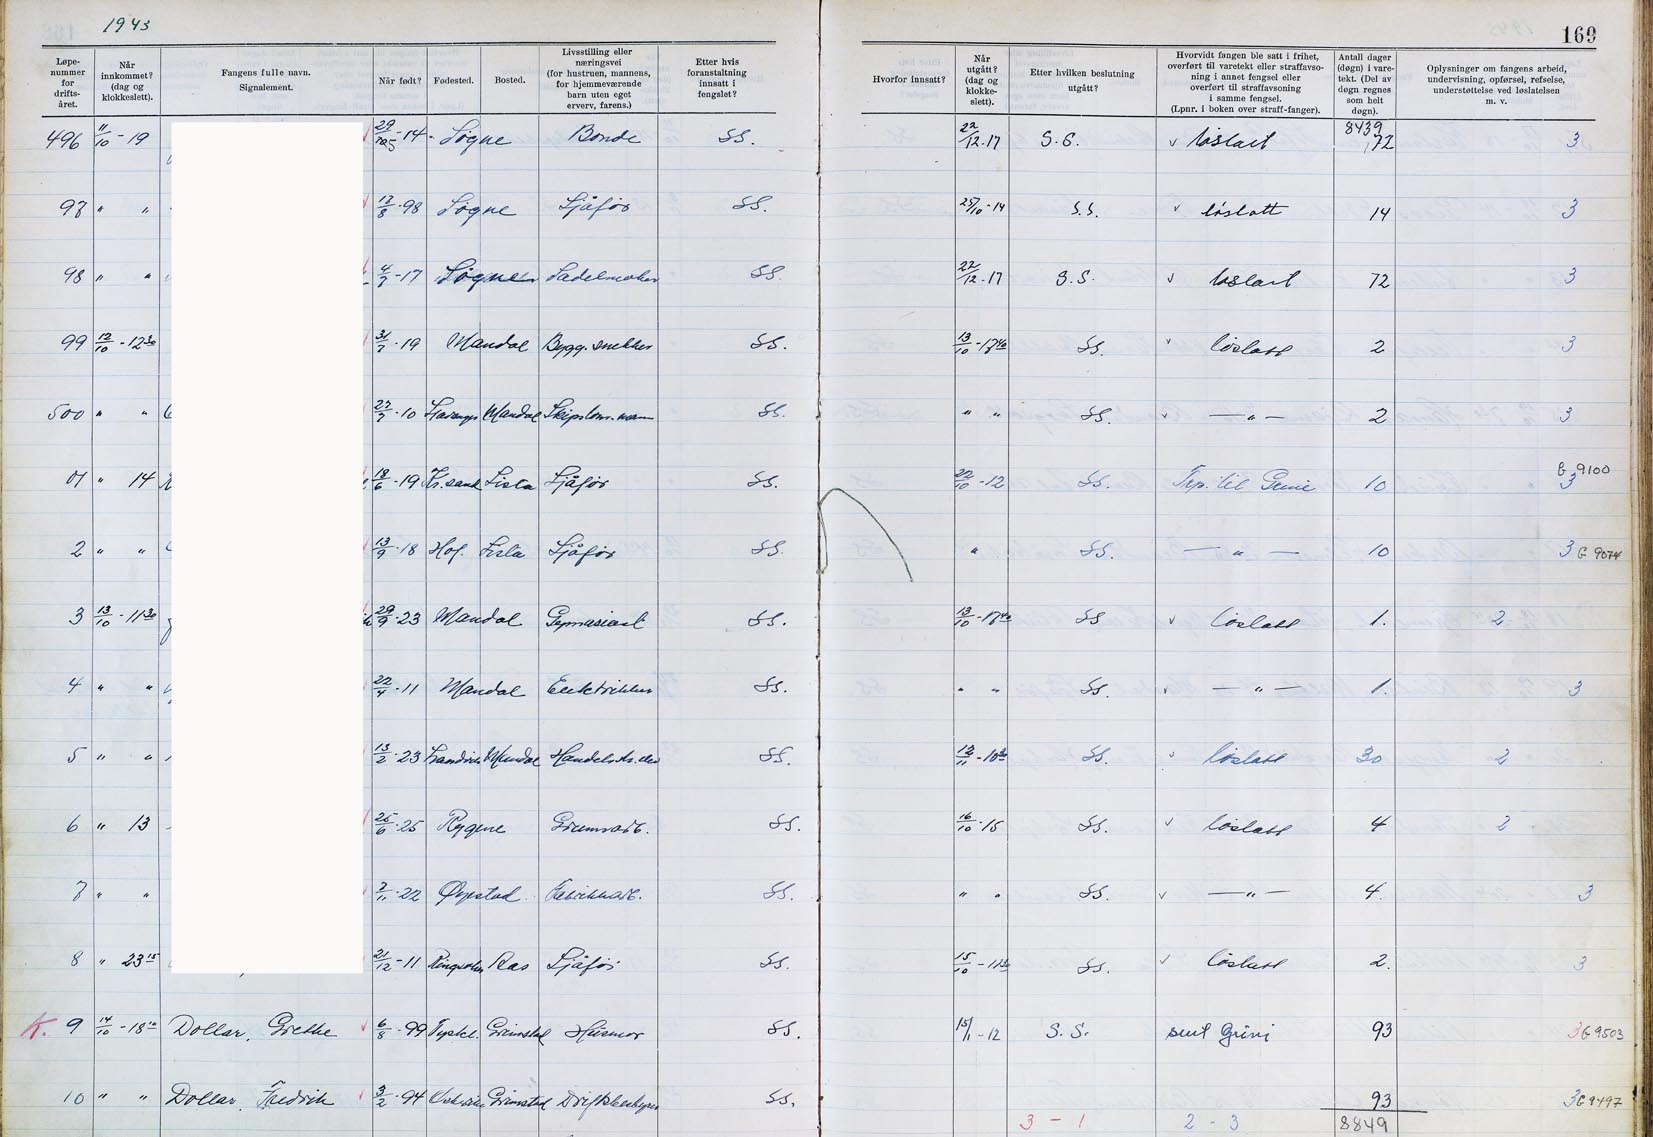 1943
169
Løpe-nummer for drifts-året.
Når innkommet? (dag og klokkeslett).
Fangens fulle navn. Signalement.
Når født?
Fødested.
Bosted.
Livsstilling eller næringsvei (for hustruen, mannens, for hjemmeværende barn uten eget erverv, farens.)
Etter hvis foranstaltning innsatt i fengslet?
Hvorfor innsatt?
Når utgått? (dag og klokke-slett).
Etter hvilken beslutning utgått?
Hvorvidt fangen ble satt i frihet, overført til varetekt eller straffavso-ning i annet fengsel eller overført til straffavsoning i samme fengsel. (Lpnr. i boken over straff-fanger).
Antall dager (døgn) i vare-tekt. (Del av døgn regnes som helt døgn).
Oplysninger om fangens arbeid, undervisning, opførsel, refselse, understøttelse ved løslatelsen m. v.
8439
496 11/10 - 19 - 14 - Søgne Bonde SS. 22/12 - 17 S.S. løslatt 72 3
97 " " 12/8 - 98 Søgne Sjåfør SS. 25/10 - 14 S.S. løslatt 14 3
98 " " - 17 Søgne Sadelmaker SS. 22/12 - 17 S.S. løslatt 72 3
99 12/10 - 12 30 31/7 - 19 Mandal Bygg. snekker SS. 13/10 - 17 40 SS. løslatt 2 3
500 " " 27/7 - 10 Mandal SS. " " SS. — " — 2 3
01 " 14 18/6 - 19 Kr.sand Lista Sjåfør SS. 22/10 - 12 SS. Trp. til Grini 10 3 G 9100
2 " " 13/9 - 18 Hof. Lista Sjåfør SS. " SS. — " — 10 3 G 9074
3 13/10 - 11 30 29/9 - 23 Mandal Gymnasiast SS. 13/10 - 17 40 SS løslatt 1. 2
4 " " 22/4 - 11 Mandal Elektriker SS. " " SS. — " — 1. 3
5 " " 13/2 - 23 Mandal SS. 12/11 - 10 30 SS. løslatt 30 2
6 " 13 25/6 - 25 Rygene SS. 16/10 - 15 SS. løslatt 4 2
7 " " - 22 Øyestad SS. " " SS. — " — 4. 3
8 " 23 15 21/12 - 11 Ås Sjåfør SS. 15/10 - 11 30 SS. løslatt 2. 3
K. 9 14/10 - 18 10 Dollar, Grethe 6/8 - 99 Tyskl. Grimstad Husmor SS. 15/1 - 12 S.S. sent Grini 93 3 G 9503
10 " " Dollar, Fredrik 3/2 - 94 Grimstad Driftsbestyrer SS. 93 3 G 9497
3 - 1 2 - 3 8849